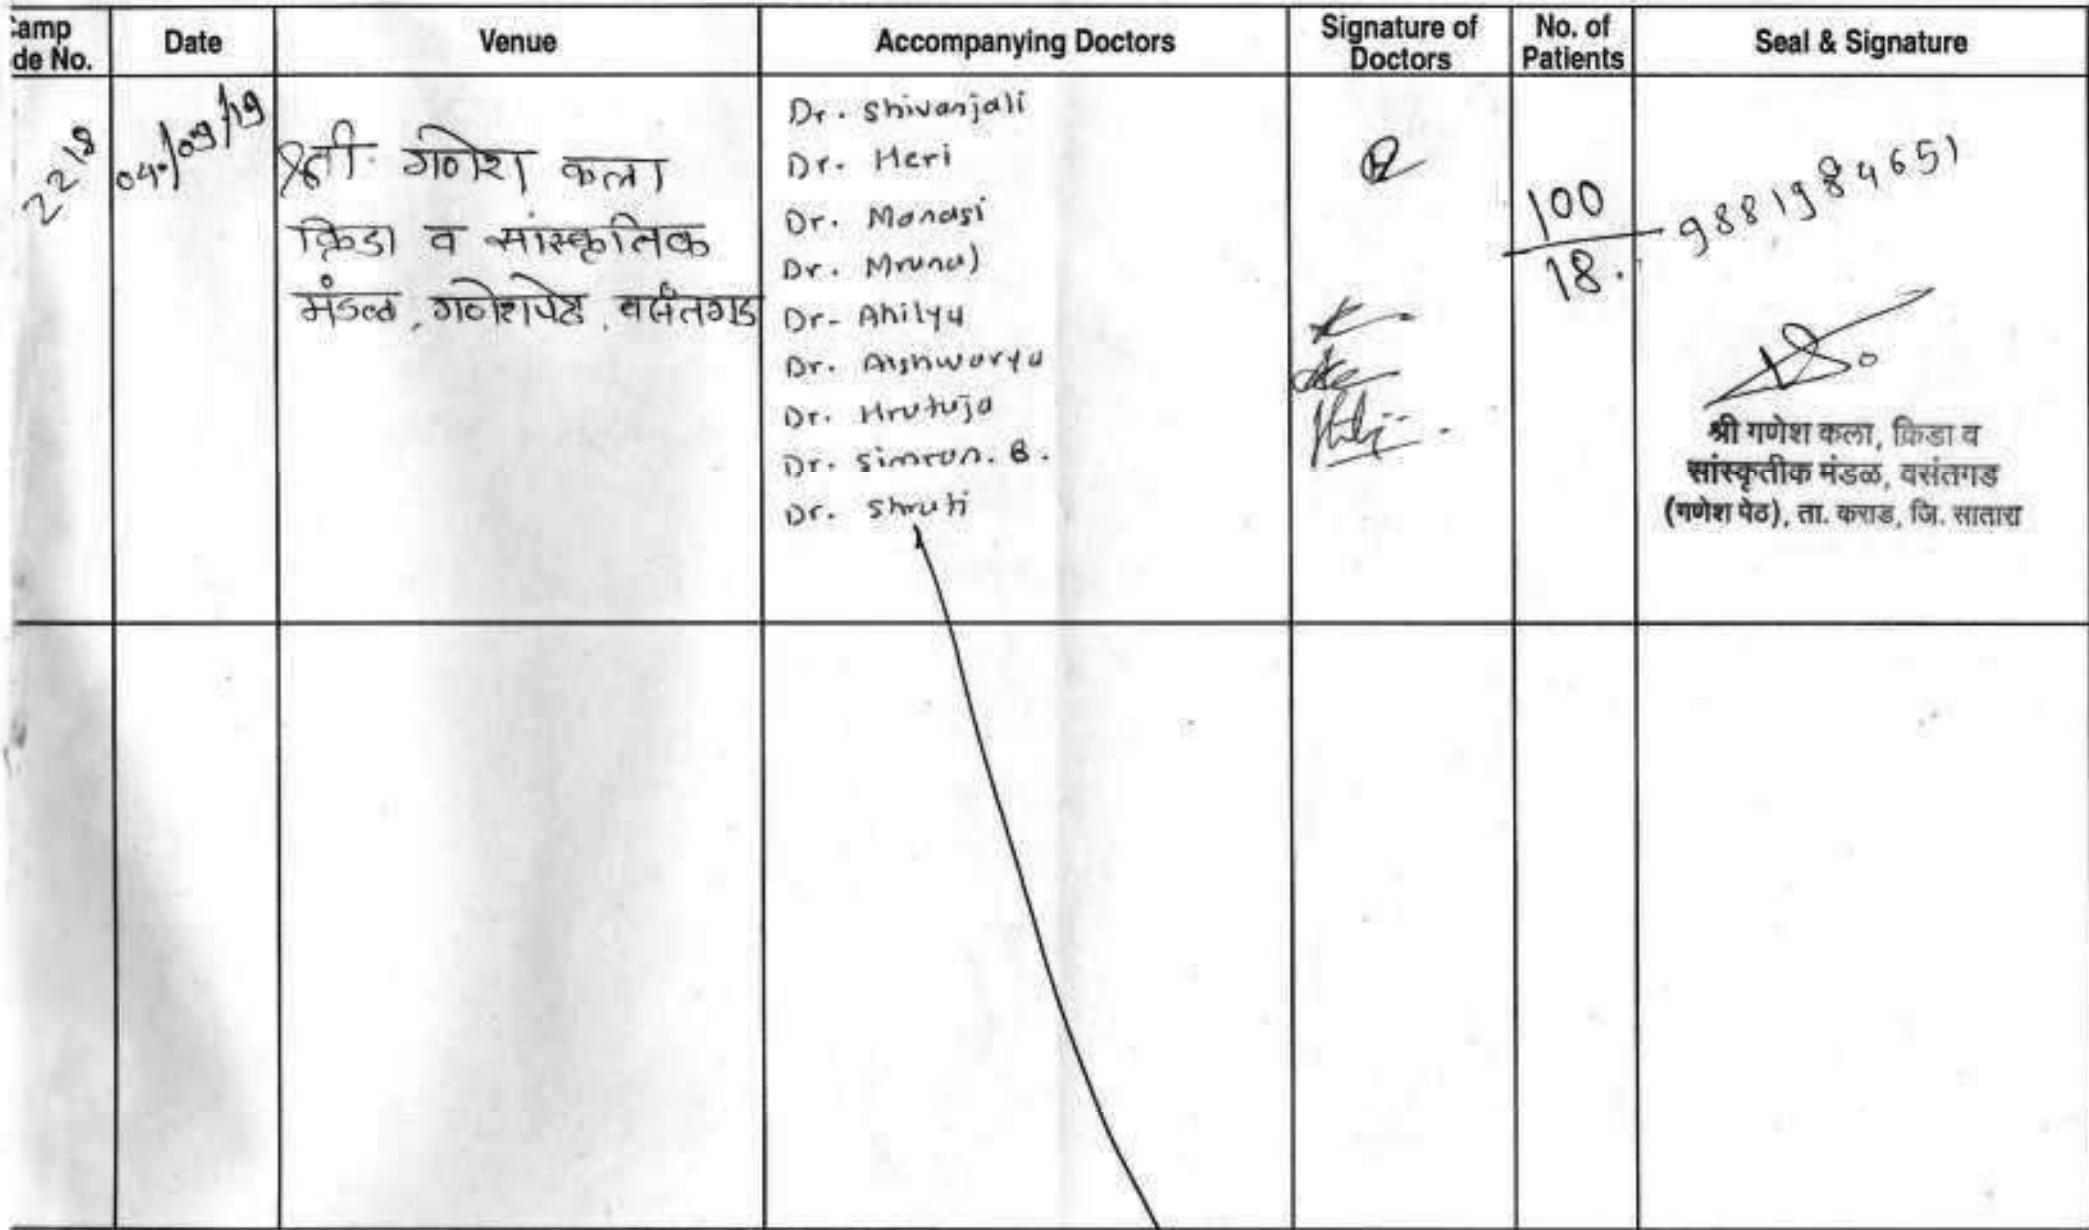 Camp
de No.
Date
Venue
Accompanying Doctors
Signature of
Doctors
No. of
Patients
Seal & Signature
2218
04/09/19
श्री गणेश कला
क्रिडा व सांस्कृतिक
मंडळ, गणेशपेठ, वसंतगड
Dr. Shivanjali
Dr. Heri
Dr. Manasi
Dr. Mrunal
Dr- Ahilya
Dr. Aishwarya
Dr. Hrutuja
Dr. Simran. B.
Dr. Shruti
100
18.
9881984651
श्री गणेश कला, क्रिडा व
सांस्कृतीक मंडळ, वसंतगड
(गणेश पेठ), ता. कराड, जि. सातारा